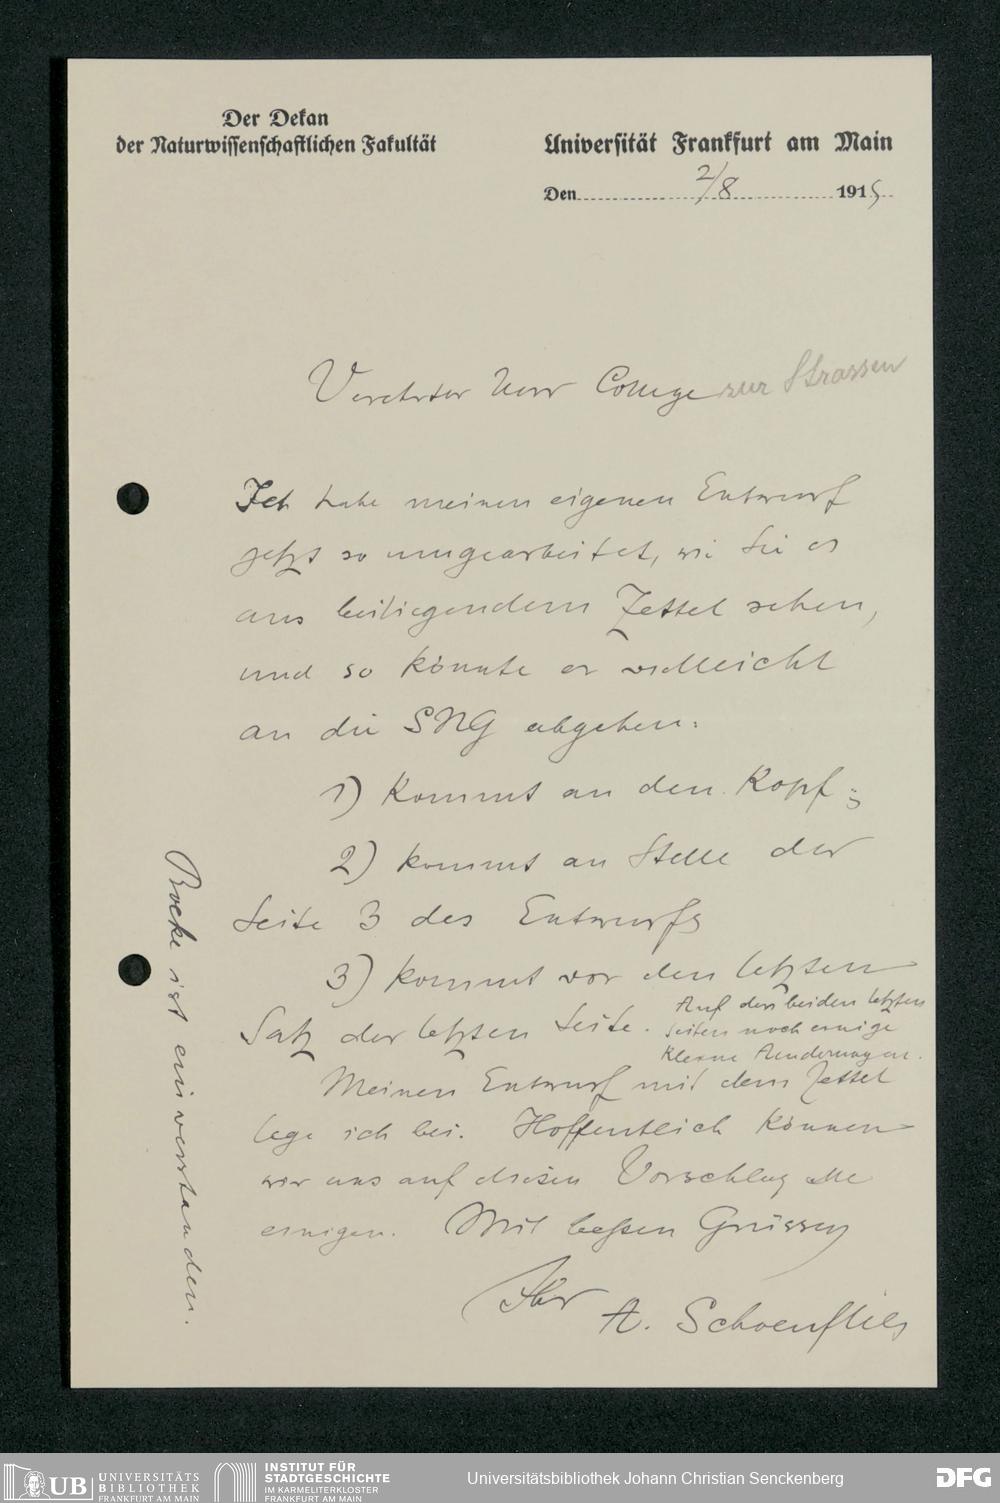 Der Dekan
der Naturwissenschaftlichen Fakultät
Universität Frankfurt am Main
Den 2/8 1915
Verehrter Herr College zur Strassen
Ich habe meinen eigenen Entwurf
jetzt so umgearbeitet, wie Sie es
aus beiliegendem Zettel sehen,
und so könnte er vielleicht
an die SNG abgehen:
1) Kommt an den Kopf;
2) kommt an Stelle der
Seite 3 des Entwurfs
3) kommt vor den letzten
Satz der letzten Seite.
Auf den beiden letzten
Seiten noch einige
kleine Aenderungen.
Meinen Entwurf mit dem Zettel
lege ich bei. Hoffentlich können
wir uns auf diesen Vorschlag alle
einigen. Mit besten Grüssen
Ihr
A. Schoenflies
Boeke ist einverstanden.
UB UNIVERSITÄTS
BIBLIOTHEK
FRANKFURT AM MAIN
INSTITUT FÜR
STADTGESCHICHTE
IM KARMELITERKLOSTER
FRANKFURT AM MAIN
Universitätsbibliothek Johann Christian Senckenberg
DFG